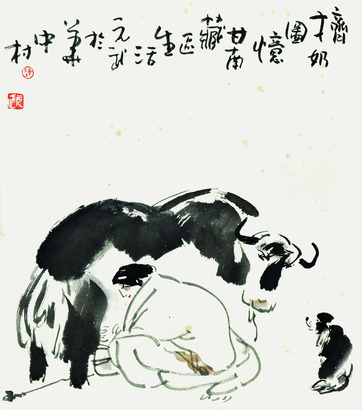 擠奶圖憶甘南藏區生活元武於華中村